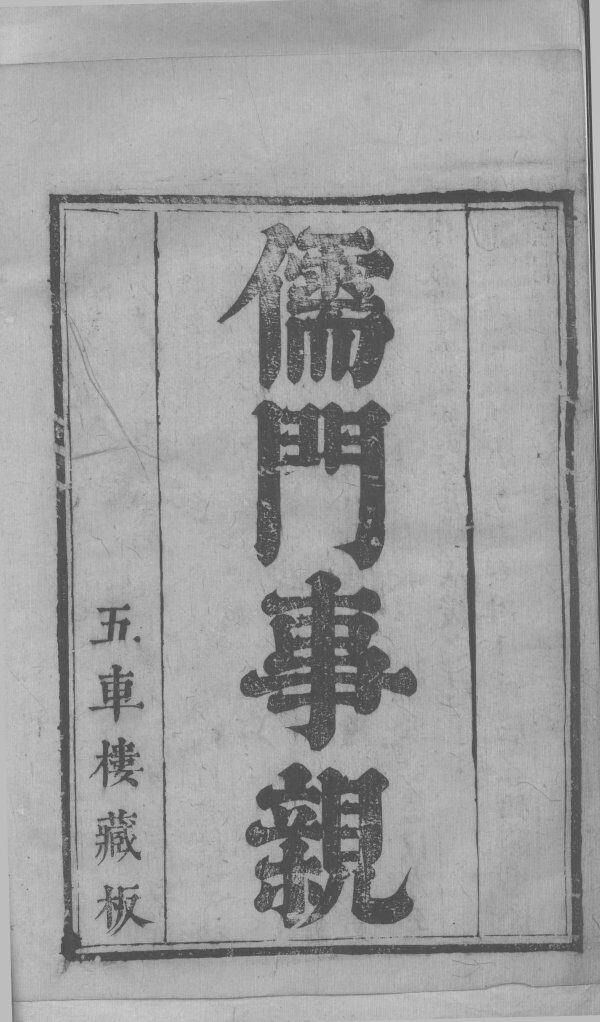 儒門事親
五車樓藏板